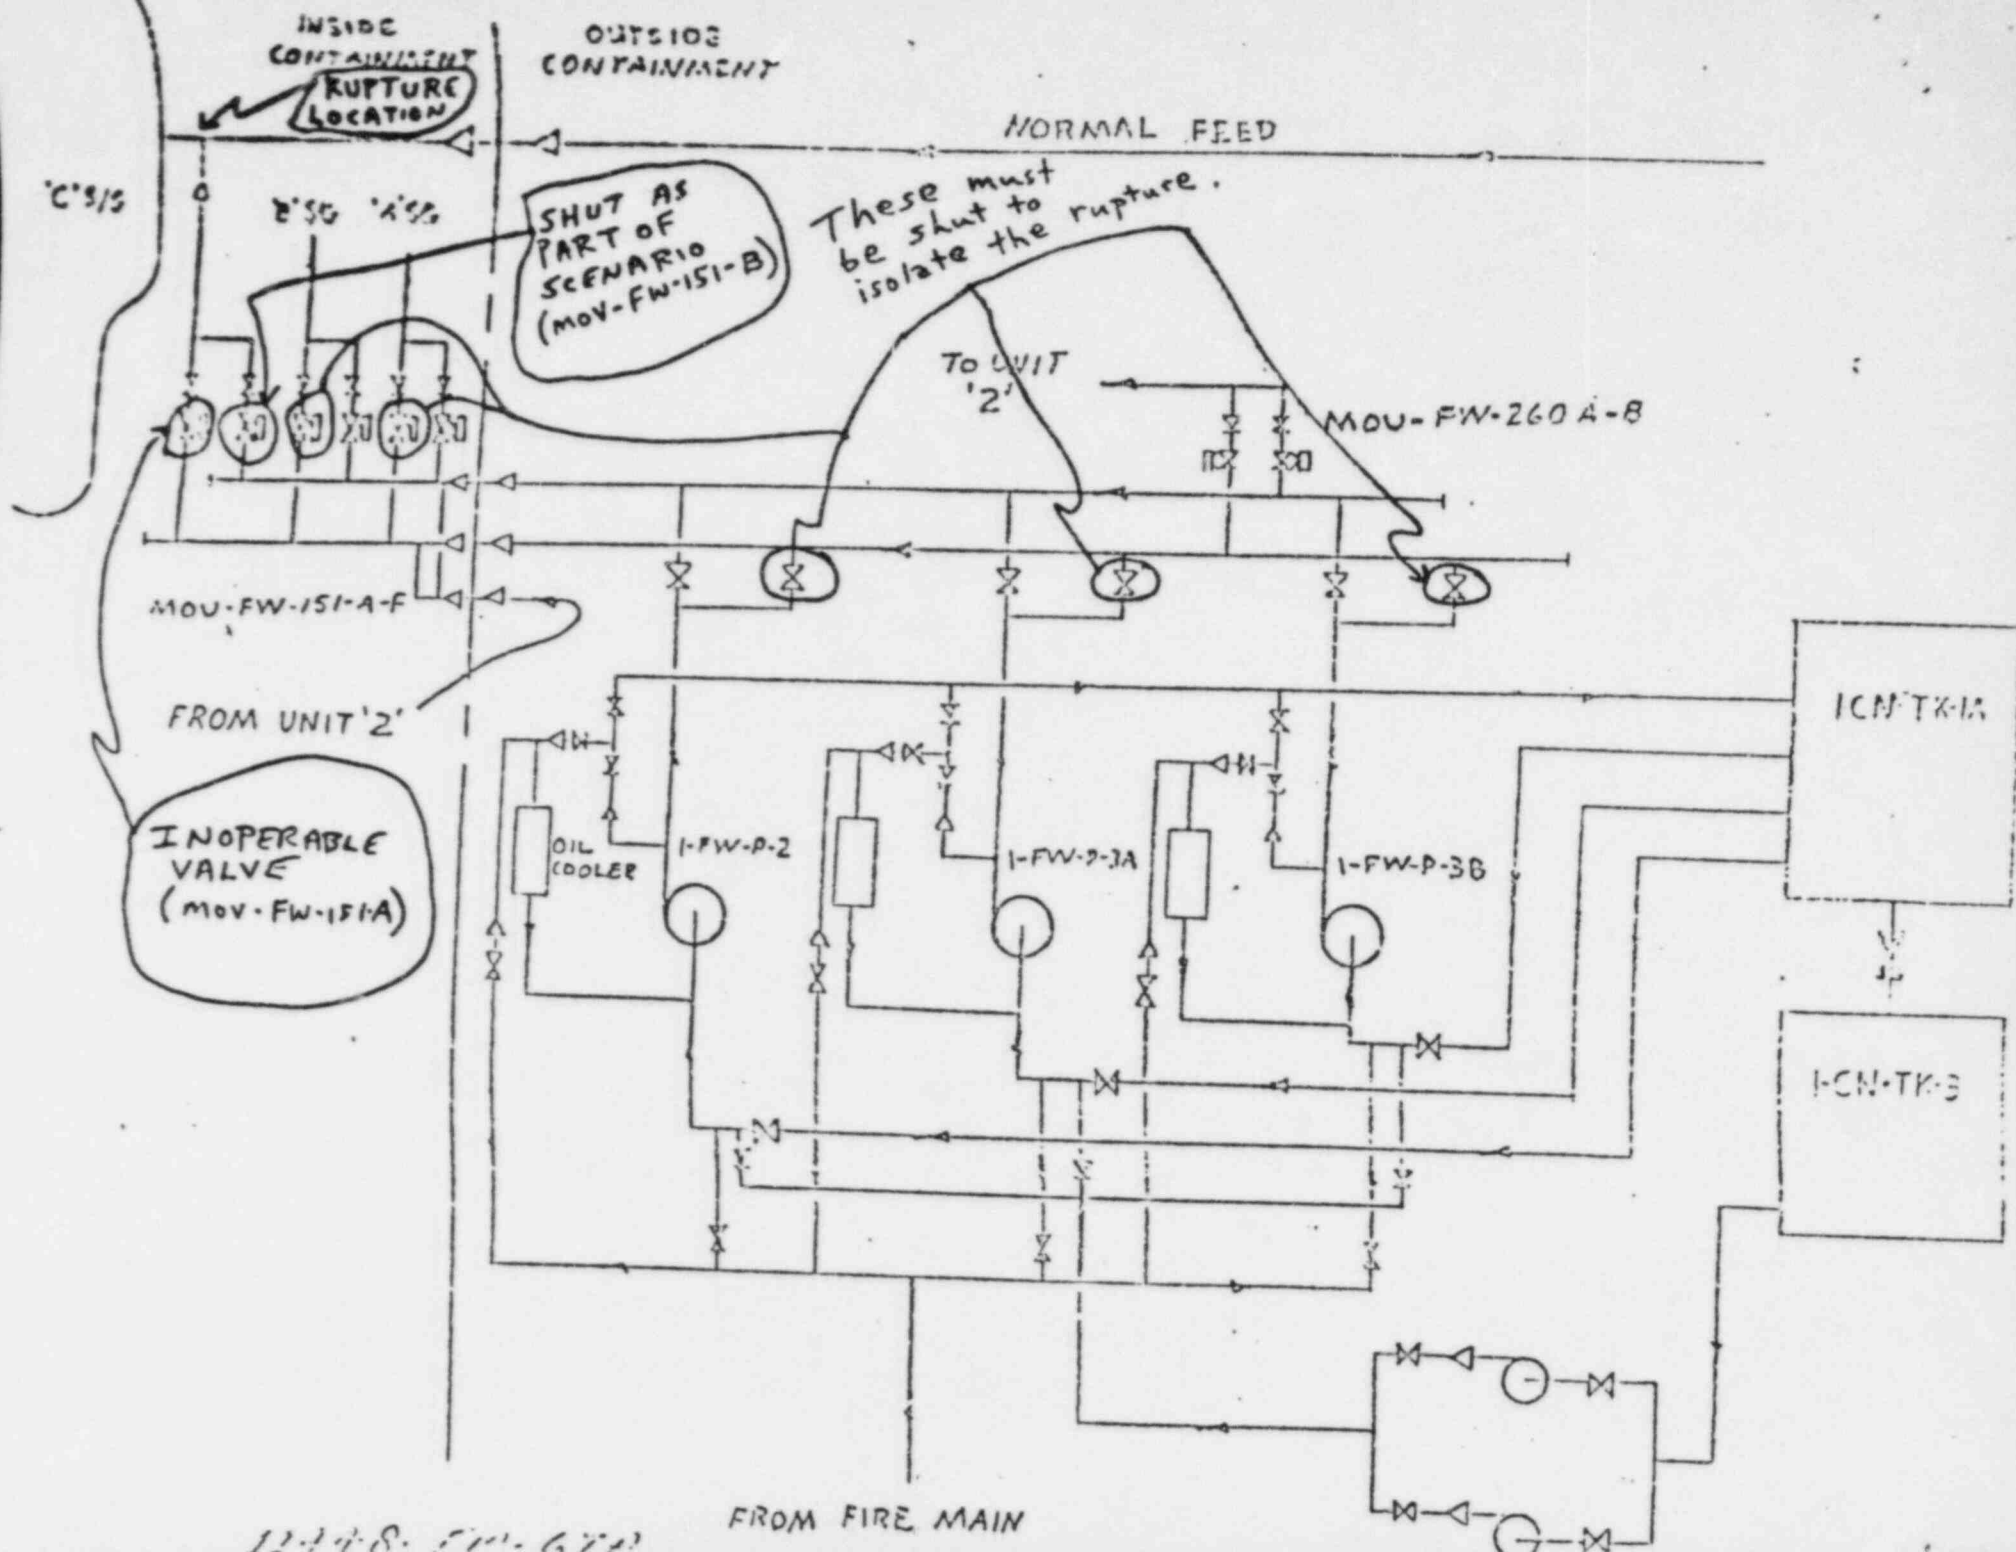 INSIDE
CONTAINMENT
RUPTURE
LOCATION
OUTSIDE
CONTAINMENT
NORMAL FEED
'C' S/G
SHUT AS
PART OF
SCENARIO
(MOV-FW-151-B)
These must
be shut to
isolate the rupture.
TO UNIT
'2'
MOV-FW-260 A-B
MOV-FW-151-A-F
FROM UNIT '2'
INOPERABLE
VALVE
(MOV-FW-151-A)
OIL
COOLER
1-FW-P-2
1-FW-P-3A
1-FW-P-3B
1CN-TK-1A
1-CN-TK-3
FROM FIRE MAIN